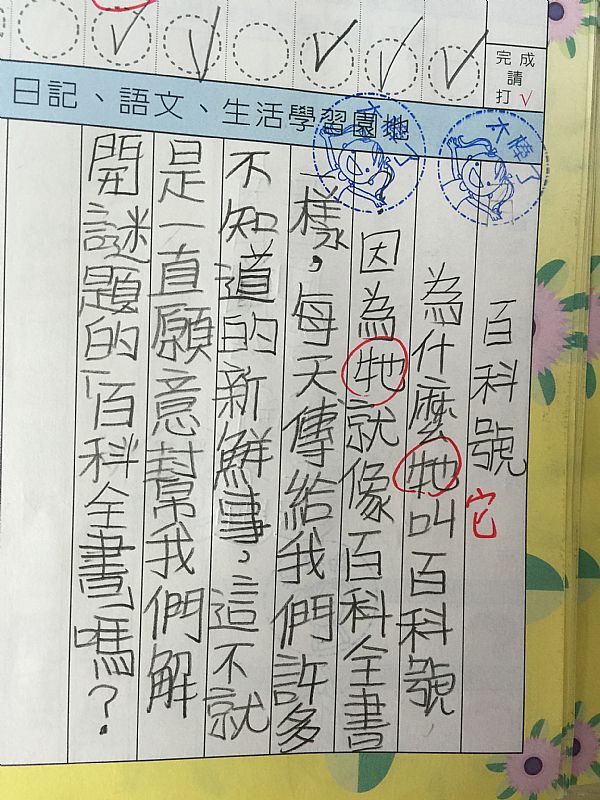 完成
請
打√
日記、語文、生活學習園地
太棒了
太棒了
百科號
為什麼牠叫百科號,
它
因為牠就像百科全書
一樣,每天傳給我們許多
不知道的新鮮事,這不就
是一直願意幫我們解
開謎題的「百科全書」嗎?